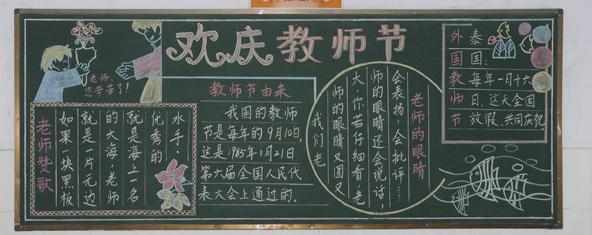 欢庆教师节
老师,
您辛苦了!
老师赞歌
如果一块黑板
就是一片无边
的大海,老师
就是海上一名
优秀的
水手。
教师节由来
我国的教师
节是每年的9月10日,
这是1985年1月21日
第六届全国人民代
表大会上通过的。
老师的眼睛
我们老
师的眼睛又圆又
大,你若仔细看,老
师的眼睛还会说话,
会表扬,会批评……
外国教师节
泰
国:
每年一月十六
日,这天全国
放假,共同庆祝